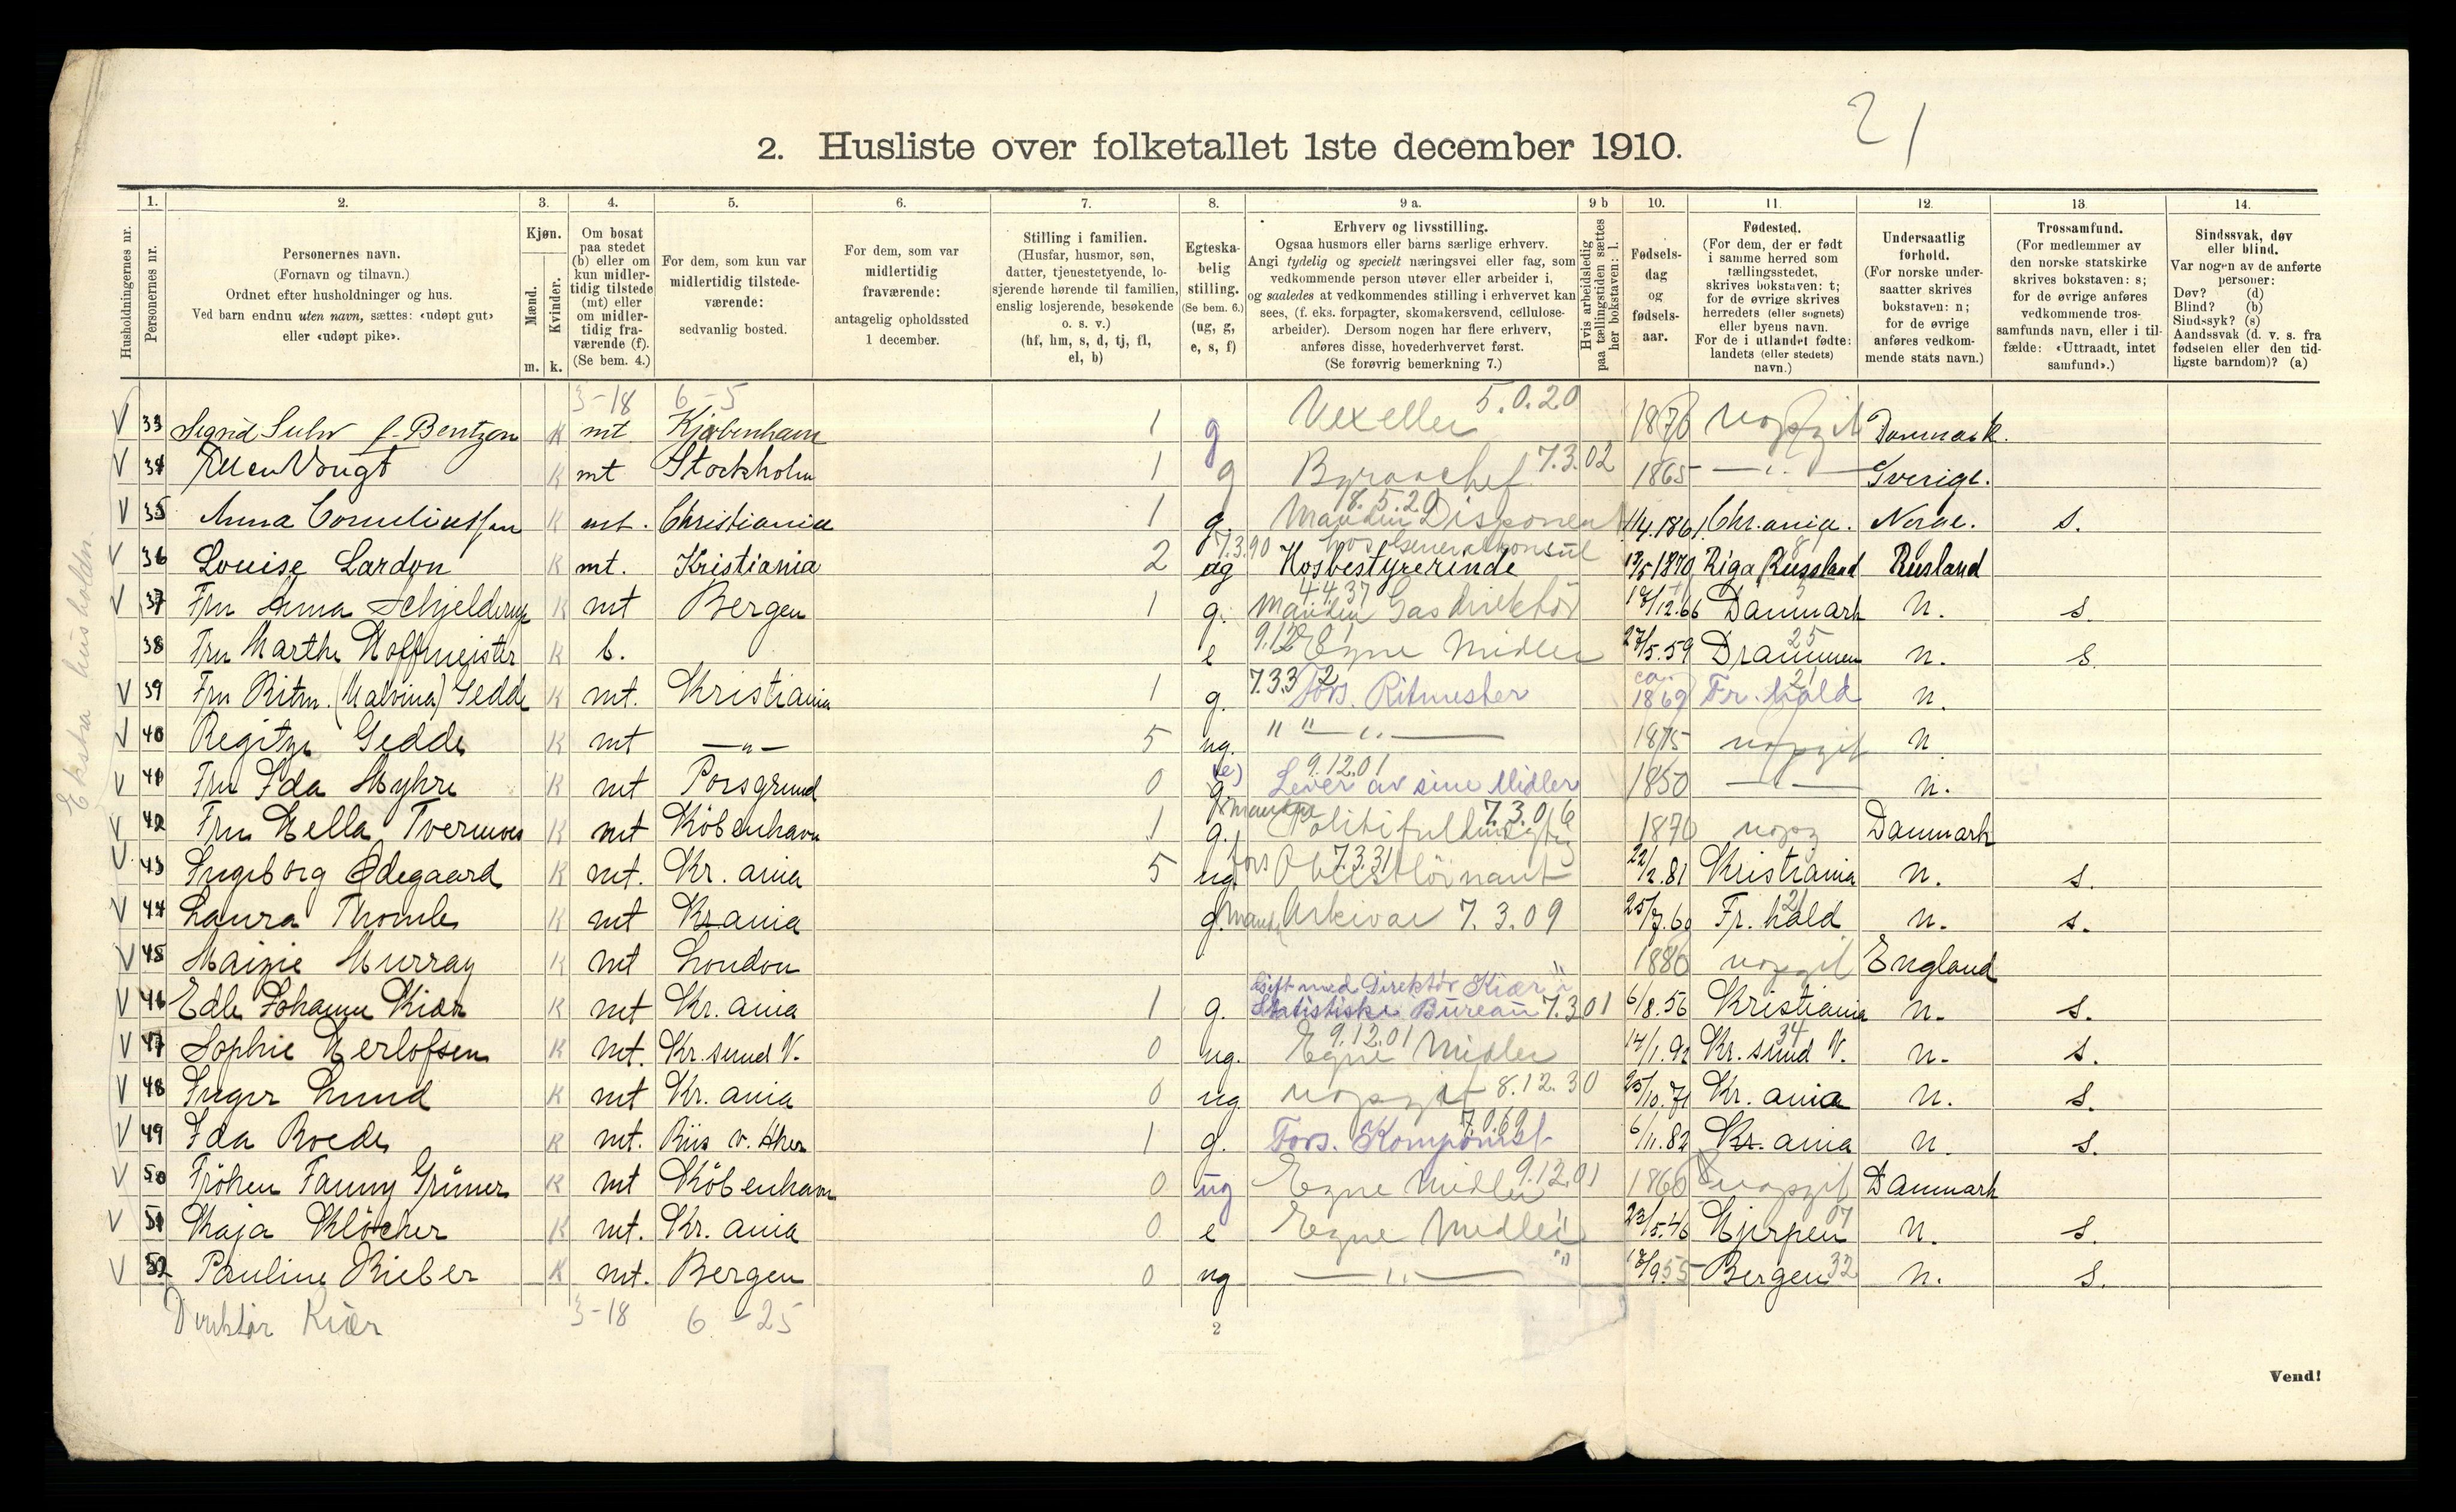 21
2. Husliste over folketallet 1ste december 1910.
Husholdningernes nr.
1. Personernes nr.
2. Personernes navn. (Fornavn og tilnavn.) Ordnet efter husholdninger og hus. Ved barn endnu uten navn, sættes: «udøpt gut» eller «udøpt pike».
3. Kjøn. Mænd. Kvinder. m. k.
4. Om bosat paa stedet (b) eller om kun midlertidig tilstede (mt) eller om midlertidig fraværende (f). (Se bem. 4.)
5. For dem, som kun var midlertidig tilstedeværende: sedvanlig bosted.
6. For dem, som var midlertidig fraværende: antagelig opholdssted 1 december.
7. Stilling i familien. (Husfar, husmor, søn, datter, tjenestetyende, losjerende hørende til familien, enslig losjerende, besøkende o. s. v.) (hf, hm, s, d, tj, fl, el, b)
8. Egteskabelig stilling. (Se bem. 6.) (ug, g, e, s, f)
9 a. Erhverv og livsstilling. Ogsaa husmors eller barns særlige erhverv. Angi tydelig og specielt næringsvei eller fag, som vedkommende person utøver eller arbeider i, og saaledes at vedkommendes stilling i erhvervet kan sees, (f. eks. forpagter, skomakersvend, cellulosearbeider). Dersom nogen har flere erhverv, anføres disse, hovederhvervet først. (Se forøvrig bemerkning 7.)
9 b Hvis arbeidsledig paa tællingstiden sættes her bokstaven: l.
10. Fødselsdag og fødselsaar.
11. Fødested. (For dem, der er født i samme herred som tællingsstedet, skrives bokstaven: t; for de øvrige skrives herredets (eller sognets) eller byens navn. For de i utlandet fødte: landets (eller stedets) navn.)
12. Undersaatlig forhold. (For norske undersaatter skrives bokstaven: n; for de øvrige anføres vedkommende stats navn.)
13. Trossamfund. (For medlemmer av den norske statskirke skrives bokstaven: s; for de øvrige anføres vedkommende trossamfunds navn, eller i tilfælde: «Uttraadt, intet samfund».)
14. Sindssvak, døv eller blind. Var nogen av de anførte personer: Døv? (d) Blind? (b) Sindssyk? (s) Aandssvak (d. v. s. fra fødselen eller den tidligste barndom)? (a)
Ekstra husholdn.
3-18 6-5 5.0.20
V 33 Sigrid Suhr f. Bentzon K mt. Kjøbenhavn 1 g Vexeller 1870 uopgit Danmark.
V 34 Ellen Vougt K mt Stockholm 1 g Byraachef 7.3.02 1865 —"— Sverige.
8.5.20
V 35 Anna Corneliussen K mt. Christiania 1 g. Manden Disponent 1/4.1861. Chr.ania. Norge. s.
7.3.90 hos Generalkonsul
V 36 Louise Lardon K mt. Kristiania 2 ug Husbestyrerinde 13/5 1870 Riga Russland Rusland
4.4.37
V 37 Fru Anna Schjelderup K mt Bergen 1 g. Manden Gasdirektør 17/12.66 Danmark n. s.
9.12 25
38 Fru Marthe Hoffmeister K b. e Egne Midler 27/5.59 Drammen n. s.
7.3.32 ca. 21
V 39 Fru Ritm. (Malvina) Gedde K mt. Kristiania 1 g. Fors. Ritmester 1869 Fr. hald n.
V 40 Regitze Gedde K mt —"— 5 ug. " " —"— 1875 uopgit n
9.12.01
V 41 Fru Ida Myhre K mt Porsgrund 0 (e) g. Lever av sine Midler 1850 —"— n.
Manden 7.3.06
V 42 Fru Hella Tvermoes K mt Köbenhavn 1 g. Politifuldmægtig 1870 uopg Danmark
7.3.31
V 43 Ingeborg Ødegaard K mt. Kr. ania 5 ug. fors Oberstlöinant 22/2.81 Kristiania n. s.
21
V 44 Laura Thomle K mt Kr ania g. Mand. Arkivar 7.3.09 25/7.60 Fr. hald n. s.
V 45 Maizie Murray K mt London 1880 uopgit England
Gift med Direktör Kiær i
V 46 Edle Johanne Kiær K mt Kr. ania 1 g. Statistiske Bureau 7.3.01 6/8.56 Kristiania n. s.
9.12.01 34
V 47 Sophie Herlofsen K mt. Kr. sund N. 0 ug. Egne Midler 14/1.92 Kr. sund N. n. s.
V 48 Inger Lund K mt Kr. ania 0 ug uopgit 8.12.30 25/10.71 Kr. ania n. s.
7.0.69
V 49 Ida Roede K mt. Riis v. Aker 1 g. Fors. Komponist 6/11.82 Kr. ania n. s.
9.12.01
V 50 Fröken Fanny Grüner K mt Köbenhavn 0 ug Egne Midler 1860 uopgit Danmark
V 51 Kaja Klöcker K mt. Kr. ania 0 e Egne Midler " 23/5.46 Gjerpen 07 n. s.
V 52 Pauline Rieber K mt. Bergen 0 ug —"— " 17/9 55 Bergen 32 n. s.
Direktør Kiær 3-18 6-25
2
Vend!